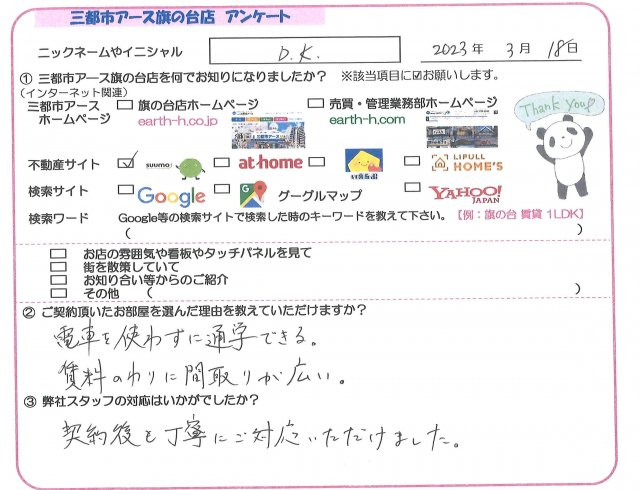 三都市アース旗の台店 アンケート
ニックネームやイニシャル D.K. 2023年 3月 18日
① 三都市アース旗の台店を何でお知りになりましたか? ※該当項目に☑お願いします。
(インターネット関連)
三都市アース ホームページ □ 旗の台店ホームページ □ 売買・管理業務部ホームページ
earth-h.co.jp earth-h.com
Thank you
不動産サイト ☑ suumo □ at home □ いえらぶ □ LIFULL HOME'S
検索サイト □ Google □ グーグルマップ □ YAHOO! JAPAN
検索ワード Google等の検索サイトで検索した時のキーワードを教えて下さい。【例:旗の台 賃貸 1LDK】
( )
□ お店の雰囲気や看板やタッチパネルを見て
□ 街を散策していて
□ お知り合い等からのご紹介
□ その他 ( )
② ご契約頂いたお部屋を選んだ理由を教えていただけますか?
電車を使わずに通学できる。
賃料のわりに間取りが広い。
③ 弊社スタッフの対応はいかがでしたか?
契約後も丁寧にご対応いただけました。